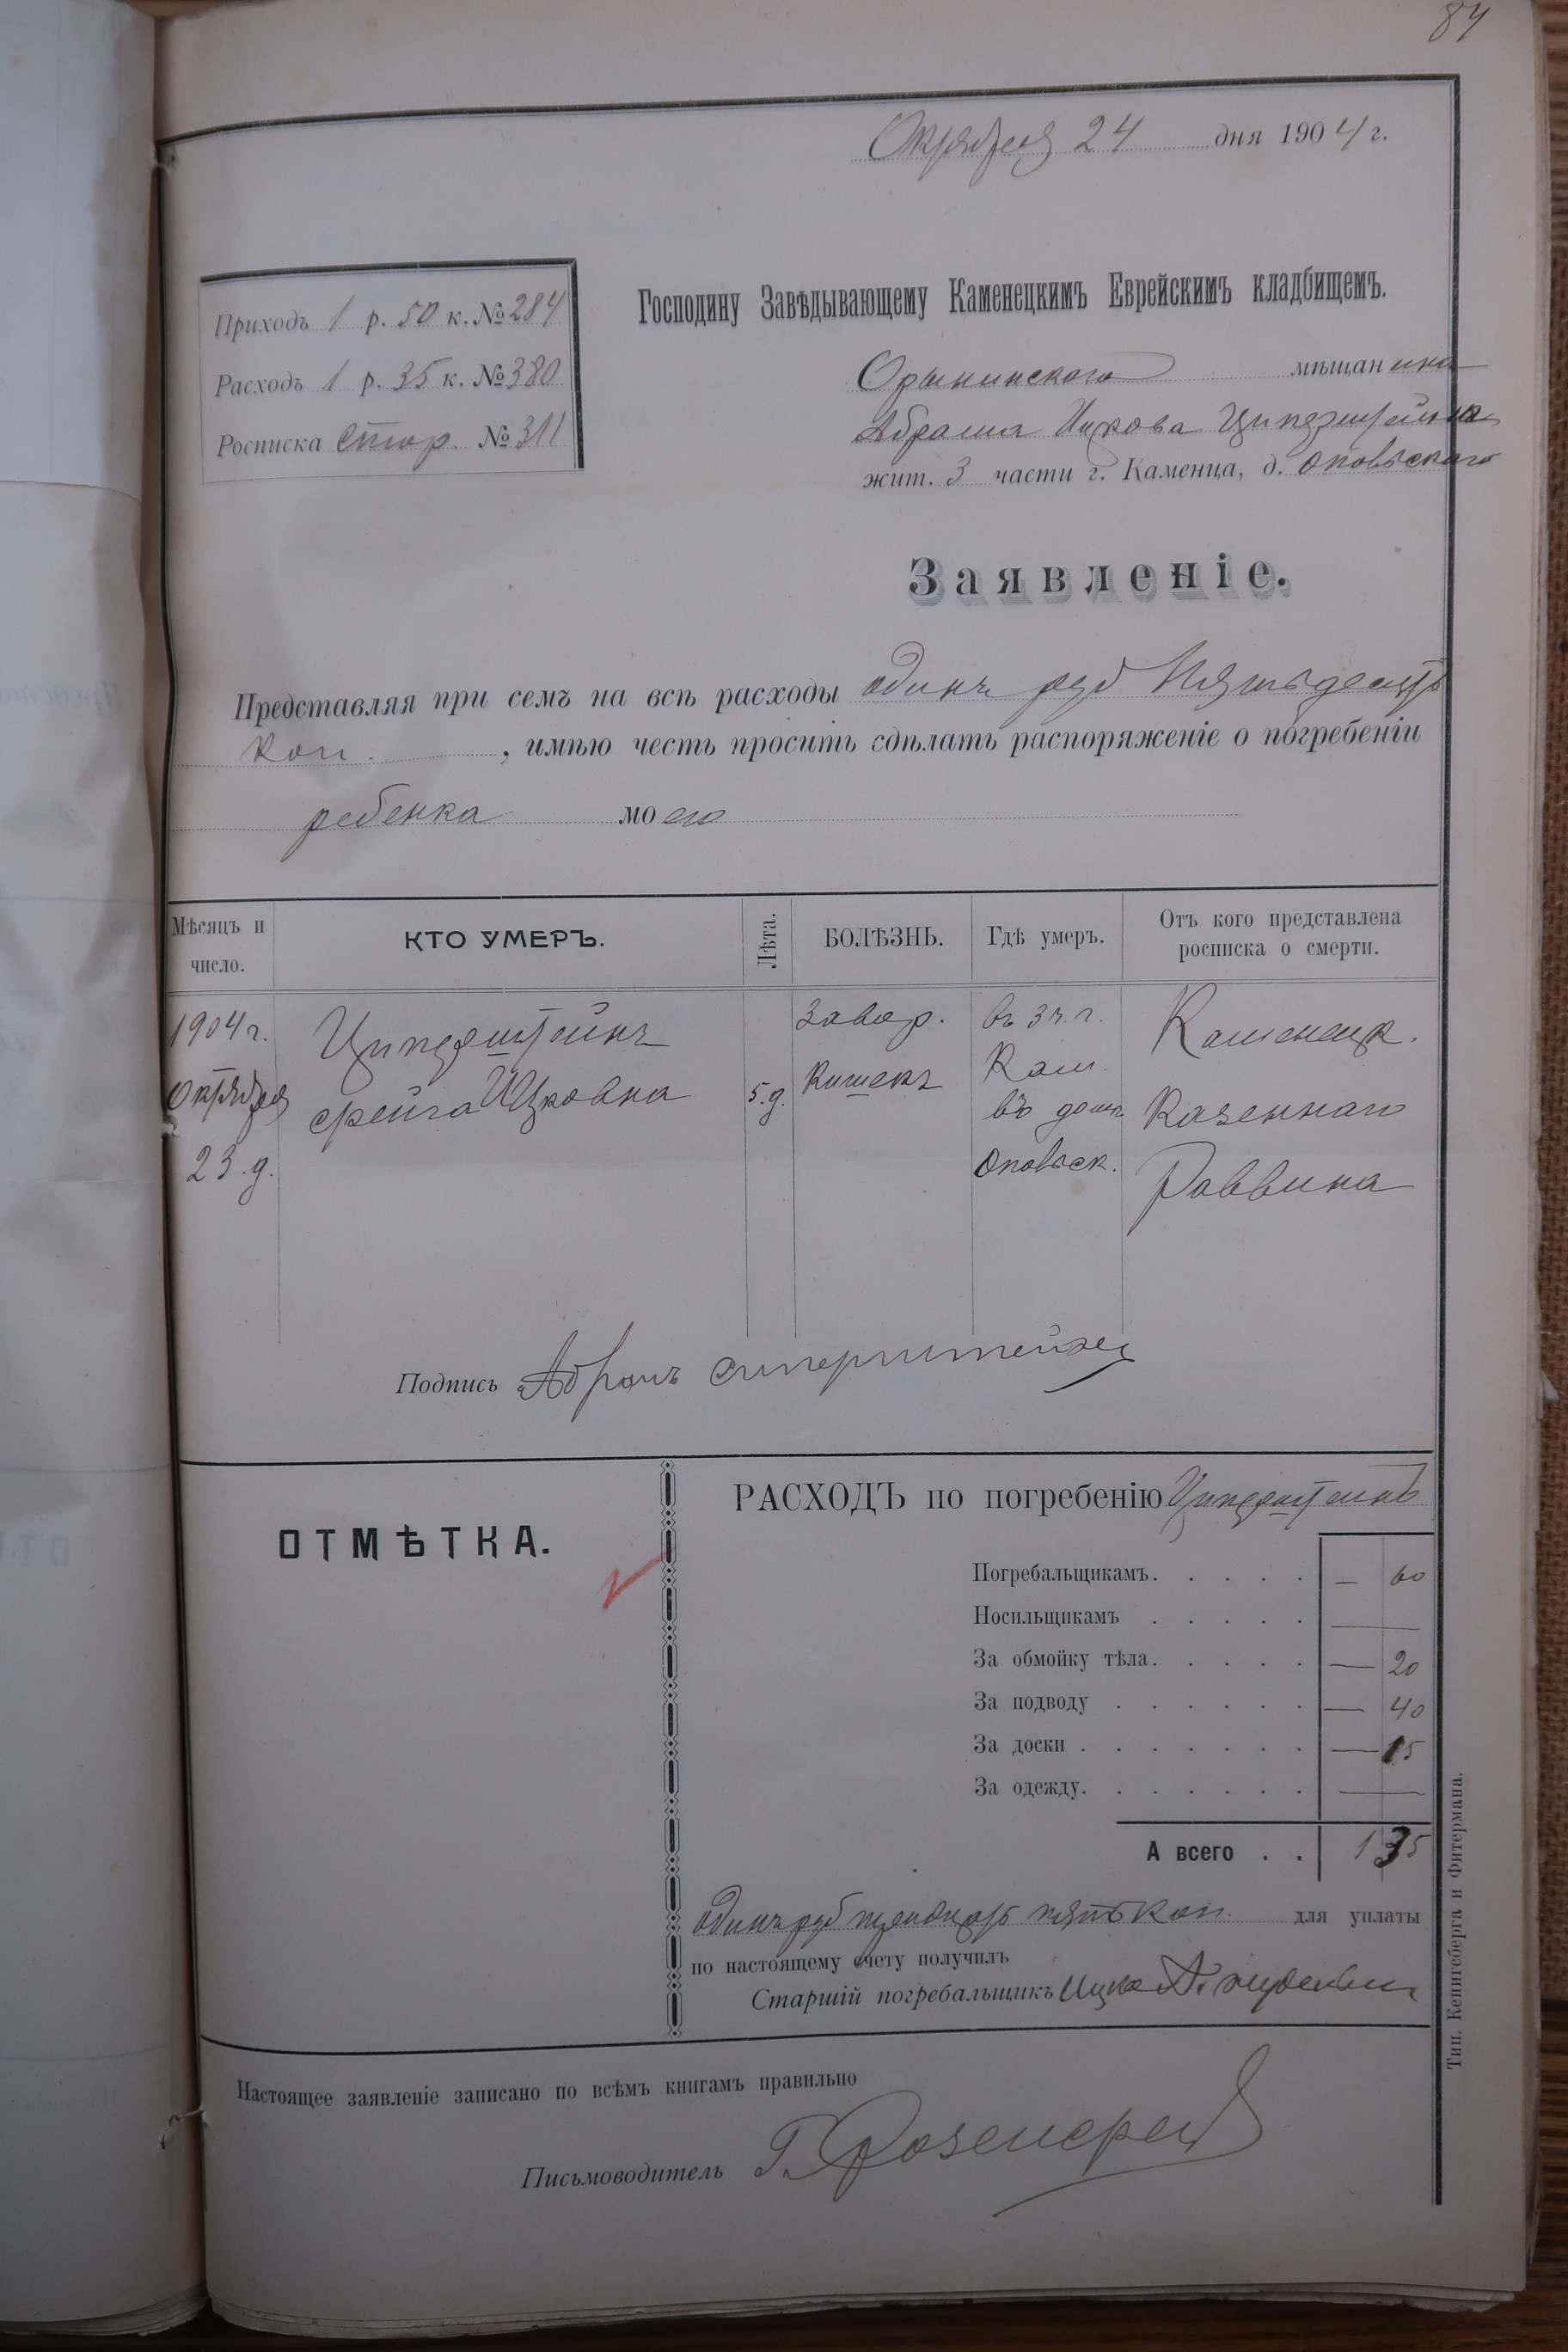 84
Октября 24 дня 1904 г.
Приходъ 1 р. 50 к. № 284
Расходъ 1 р. 35 к. № 380
Росписка стор. № 311
Господину Завѣдывающему Каменецкимъ Еврейскимъ кладбищемъ.
Орынинского мѣщанина
Абрама Ицкова
жит. 3 части г. Каменца, д. Оповского
Заявленіе.
Представляя при семъ на всѣ расходы одинъ руб Пятьдесятъ
коп. , имѣю честь просить сдѣлать распоряженіе о погребеніи
ребенка моего
Мѣсяцъ и число.
КТО УМЕРЪ.
Лѣта.
БОЛѢЗНЬ.
Гдѣ умеръ.
Отъ кого представлена росписка о смерти.
1904 г. Октября 23 д.
Ицковна
5. д.
Завор. Кишекъ
въ 3 ч. г. Кам. въ домѣ Оповск.
Каменецк. Казеннаго Раввина
Подпись Абрамъ
ОТМѢТКА.
РАСХОДЪ по погребенію
Погребальщикамъ. . . . . — 60
Носильщикамъ . . . . . —
За обмойку тѣла. . . . . — 20
За подводу . . . . . . — 40
За доски . . . . . . . — 15
За одежду. . . . . . . —
А всего . . 1 35
одинъ руб тридцать пять коп. для уплаты
по настоящему счету получилъ
Старшій погребальщикъ Ицко
Настоящее заявленіе записано по всѣмъ книгамъ правильно
Письмоводитель Г.
Тип. Кенигсберга и Фитермана.